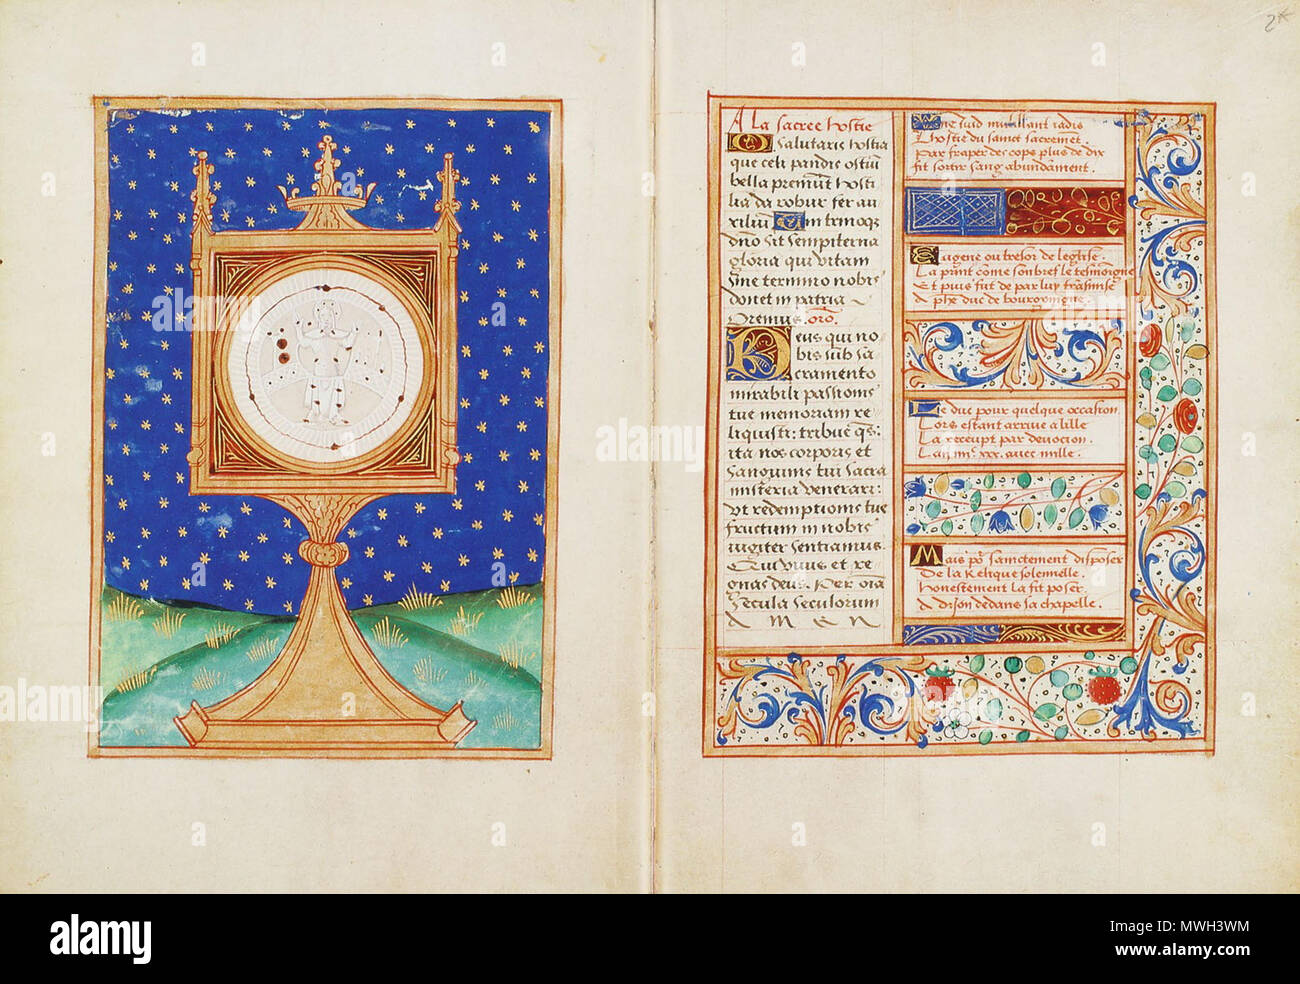 2
A La sacree hostie
O Salutaris hostia
que celi pandis ostiū
bella premūt hosti
lia da robur fer au
xiliū Uni trinoq3
dño sit sempiterna
gloria qui vitam
sine termino nobis
donet in patria
Oremus. orõ.
Deus qui no
bis sub sa
cramento
mirabili passionis
tue memoriam re
liquisti: tribue q̄s:
ita nos corporis et
sanguinis tui sacra
misteria venerari:
vt redemptionis tue
fructum in nobis
iugiter sentiamus.
Qui viuis et re
gnas deus. Per oīa
secula seculorum
A M E N
Vng iuif mutillant
Lhostie du sainct sacremēt
Par frapper dor cops plus de dix
fit sortir sang abundāment.
Eugene ou tresor de leglise.
La print cōme son bref le tesmoigne
Et puis fut de par luy trāsmise
A phē duc de bourgongne.
Le duc pour quelque occasion
Lors estant arriue a lille
La receupt par deuocion.
Lan iiijᶜ xxx. auec mille.
Mais po sainctement disposer
De la Relique solemnelle.
honestement la fit poser
A dijon dedans sa chapelle.
alamy
a
a
a
a
alamy
Image ID: MWH3WM
www.alamy.com